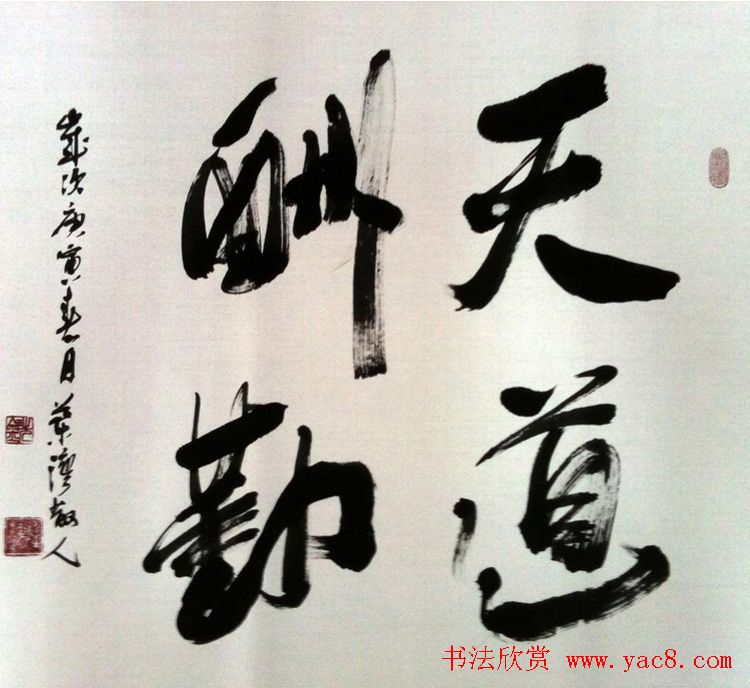 天道
酬勤
岁次庚寅春月叶湾散人
书法欣赏 www.yac8.com